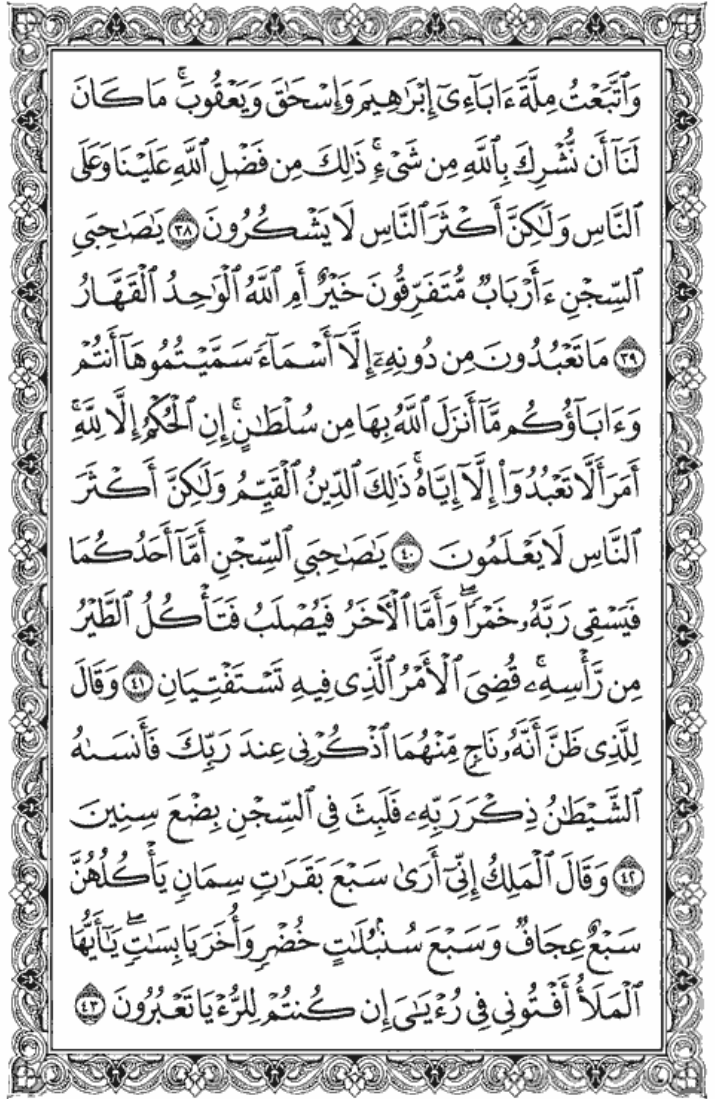 وَٱتَّبَعْتُ مِلَّةَ ءَابَآءِىٓ إِبْرَٰهِيمَ وَإِسْحَٰقَ وَيَعْقُوبَ ۚ مَا كَانَ
لَنَآ أَن نُّشْرِكَ بِٱللَّهِ مِن شَىْءٍ ۚ ذَٰلِكَ مِن فَضْلِ ٱللَّهِ عَلَيْنَا وَعَلَى
ٱلنَّاسِ وَلَٰكِنَّ أَكْثَرَ ٱلنَّاسِ لَا يَشْكُرُونَ ٣٨ يَٰصَٰحِبَىِ
ٱلسِّجْنِ ءَأَرْبَابٌ مُّتَفَرِّقُونَ خَيْرٌ أَمِ ٱللَّهُ ٱلْوَٰحِدُ ٱلْقَهَّارُ
٣٩ مَا تَعْبُدُونَ مِن دُونِهِۦٓ إِلَّآ أَسْمَآءً سَمَّيْتُمُوهَآ أَنتُمْ
وَءَابَآؤُكُم مَّآ أَنزَلَ ٱللَّهُ بِهَا مِن سُلْطَٰنٍ ۚ إِنِ ٱلْحُكْمُ إِلَّا لِلَّهِ ۚ
أَمَرَ أَلَّا تَعْبُدُوٓا۟ إِلَّآ إِيَّاهُ ۚ ذَٰلِكَ ٱلدِّينُ ٱلْقَيِّمُ وَلَٰكِنَّ أَكْثَرَ
ٱلنَّاسِ لَا يَعْلَمُونَ ٤٠ يَٰصَٰحِبَىِ ٱلسِّجْنِ أَمَّآ أَحَدُكُمَا
فَيَسْقِى رَبَّهُۥ خَمْرًا ۖ وَأَمَّا ٱلْءَاخَرُ فَيُصْلَبُ فَتَأْكُلُ ٱلطَّيْرُ
مِن رَّأْسِهِۦ ۚ قُضِىَ ٱلْأَمْرُ ٱلَّذِى فِيهِ تَسْتَفْتِيَانِ ٤١ وَقَالَ
لِلَّذِى ظَنَّ أَنَّهُۥ نَاجٍ مِّنْهُمَا ٱذْكُرْنِى عِندَ رَبِّكَ فَأَنسَىٰهُ
ٱلشَّيْطَٰنُ ذِكْرَ رَبِّهِۦ فَلَبِثَ فِى ٱلسِّجْنِ بِضْعَ سِنِينَ
٤٢ وَقَالَ ٱلْمَلِكُ إِنِّىٓ أَرَىٰ سَبْعَ بَقَرَٰتٍ سِمَانٍ يَأْكُلُهُنَّ
سَبْعٌ عِجَافٌ وَسَبْعَ سُنۢبُلَٰتٍ خُضْرٍ وَأُخَرَ يَابِسَٰتٍ ۖ يَٰٓأَيُّهَا
ٱلْمَلَأُ أَفْتُونِى فِى رُءْيَٰىَ إِن كُنتُمْ لِلرُّءْيَا تَعْبُرُونَ ٤٣